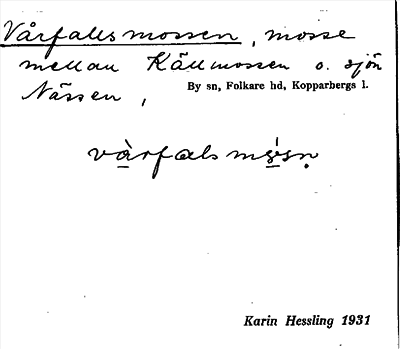 Vårfallsmossen, mosse
mellan Källmossen o. sjön
Nässen,
By sn, Folkare hd, Kopparbergs l.
vàrfalsmósn̥
Karin Hessling 1931